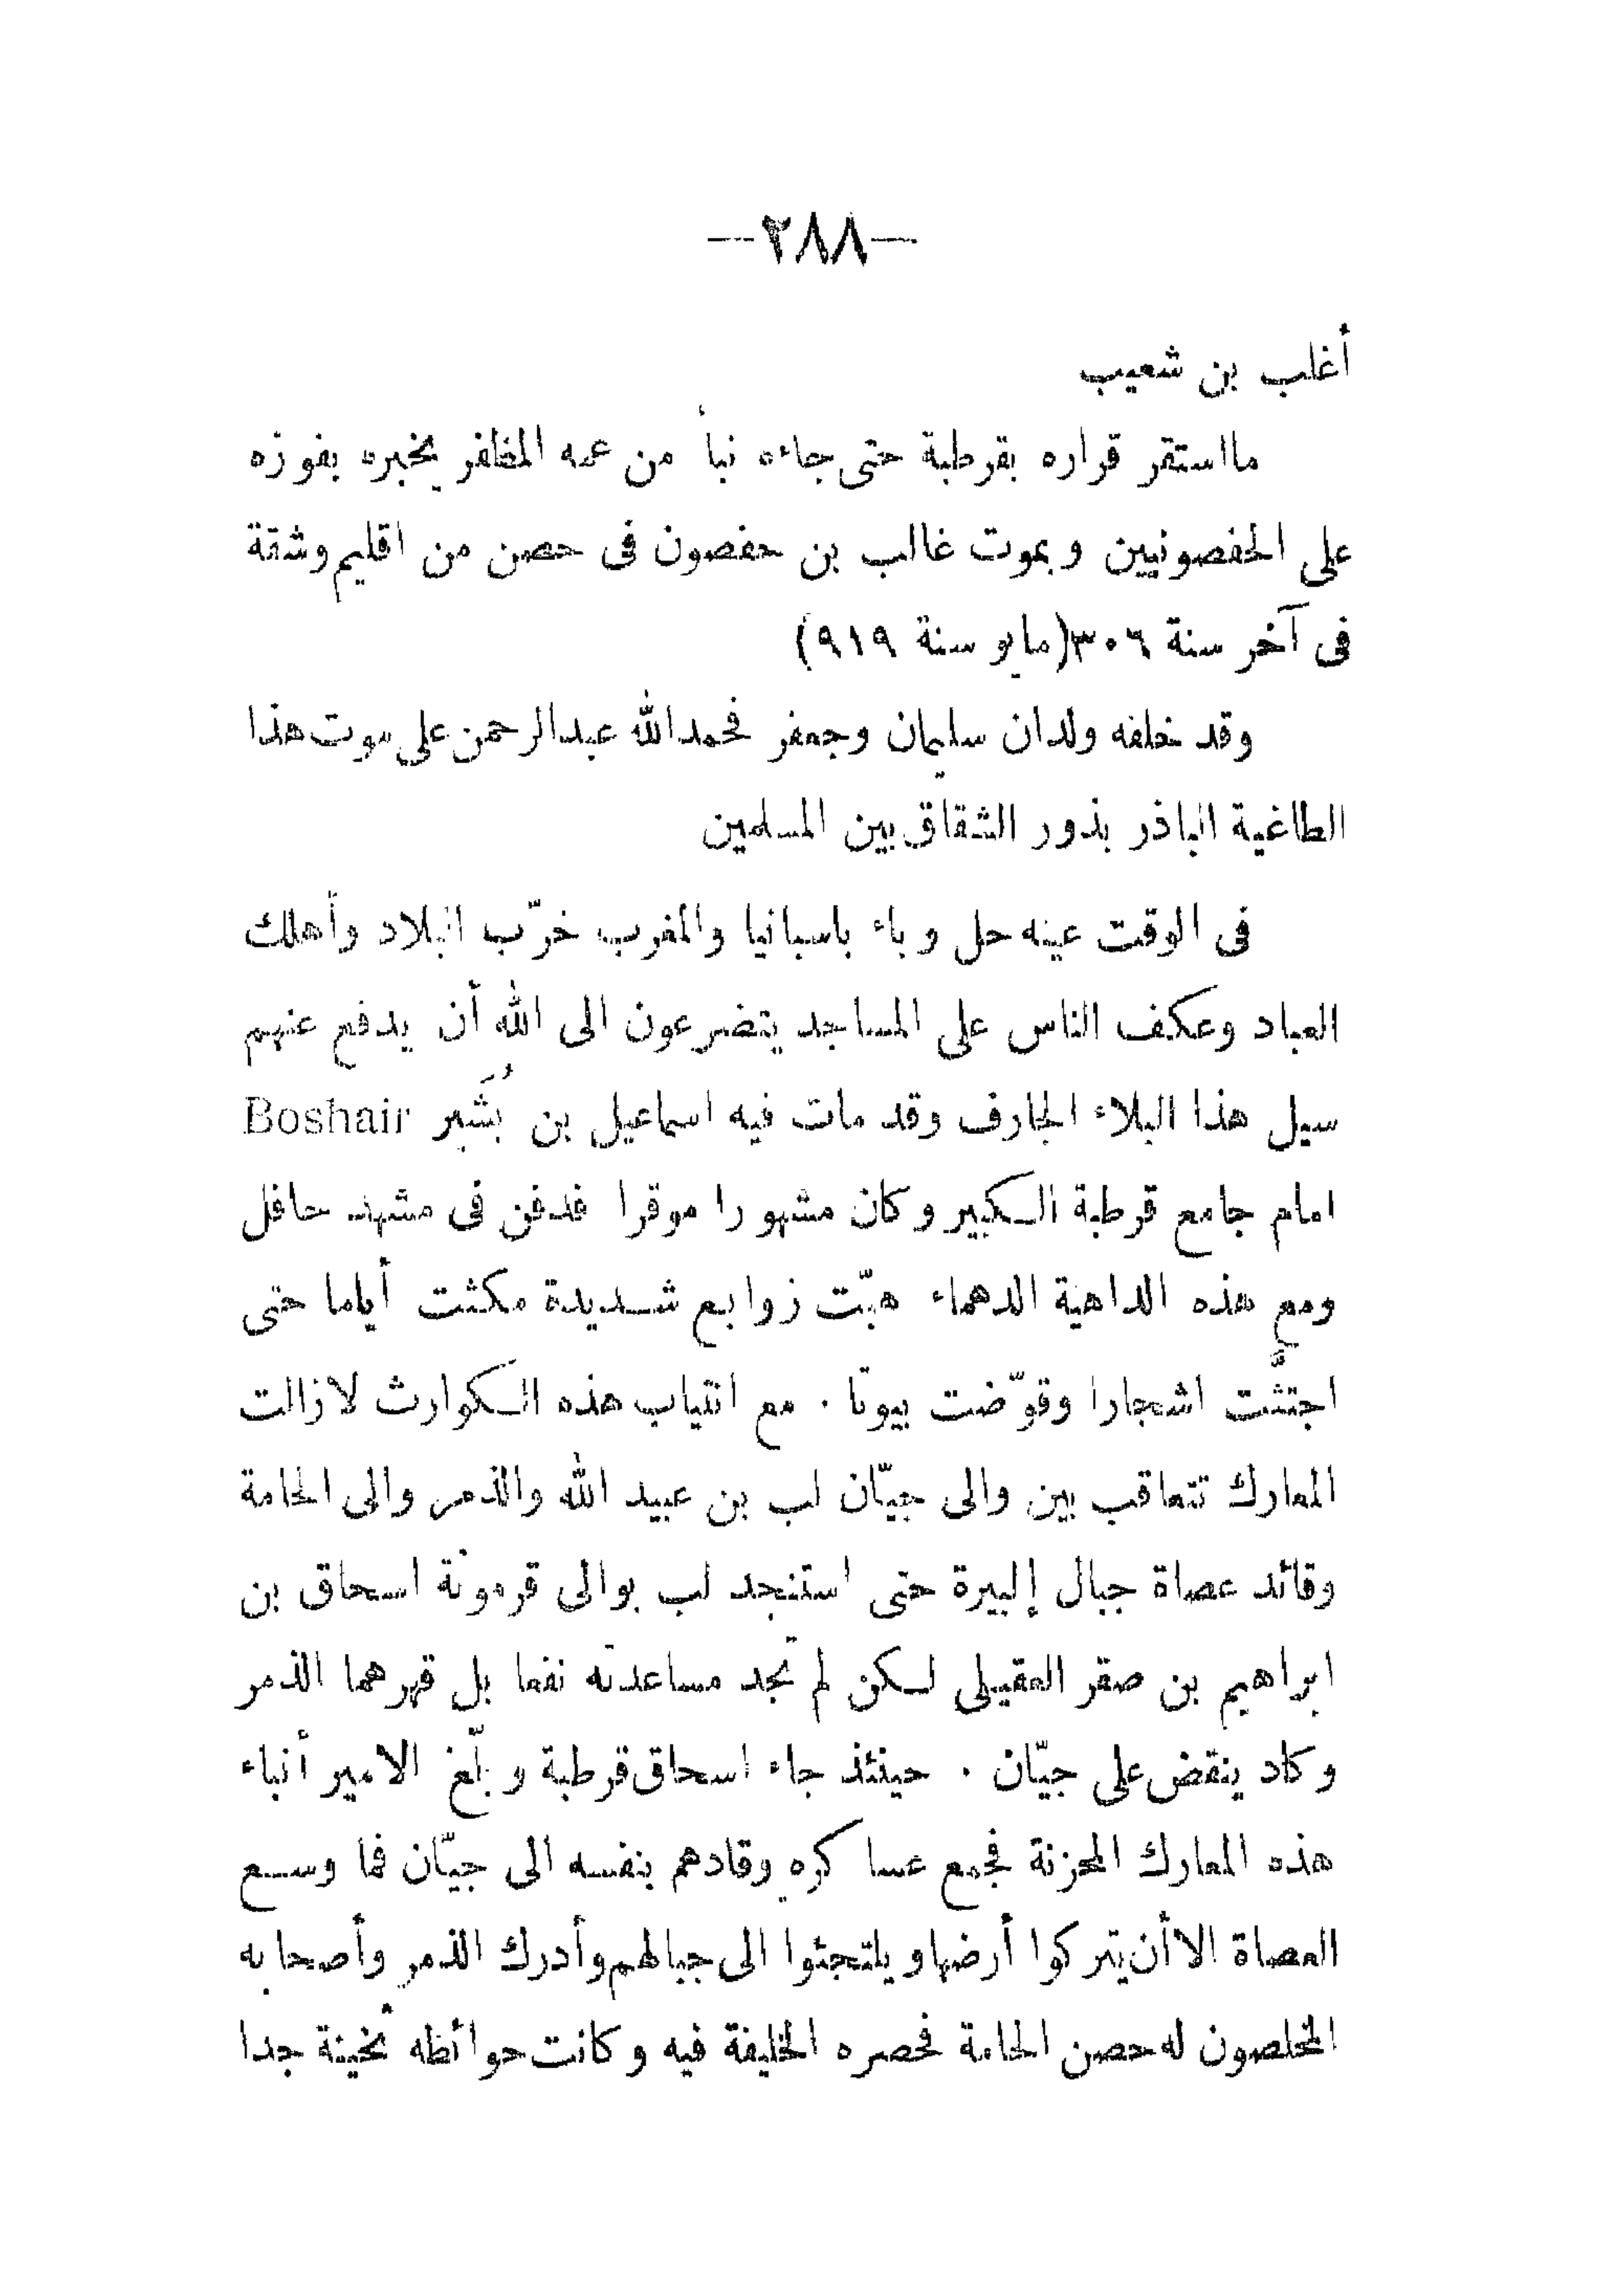 —٢٨٨—
أغلب بن شعيب
مااستقر قراره بقرطبة حتى جاءه نبأ من عمه المظفر يخبره بفوزه
على الحفصونيين وبموت غالب بن حفصون فى حصن من اقليم وشقة
فى آخر سنة ٣٠٦ (مايو سنة ٩١٩)
وقد خلفه ولدان سليمان وجعفر فحمدالله عبدالرحمن على موت هذا
الطاغية الباذر بذور الشقاق بين المسلمين
فى الوقت عينه حل وباء باسبانيا والمغرب خرّب البلاد وأهلك
العباد وعكف الناس على المساجد يتضرعون الى الله أن يدفع عنهم
سيل هذا البلاء الجارف وقد مات فيه اسماعيل بن بُشَير Boshair
امام جامع قرطبة الكبير وكان مشهورا موقرا فدفن فى مشهد حافل
ومع هذه الداهية الدهماء هبّت زوابع شديدة مكثت أياما حتى
اجتثَّت اشجارا وقوّضت بيوتا . مع انتياب هذه الكوارث لازالت
المعارك تتعاقب بين والى جيّان لب بن عبيد الله والذمر والى الحامة
وقائد عصاة جبال إلبيرة حتى استنجد لب بوالى قرمونة اسحاق بن
ابراهيم بن صقر العقيلى لكن لم تجد مساعدته نفعا بل قهرهما الذمر
وكاد ينقض على جيّان . حينئذ جاء اسحاق قرطبة وبلّغ الامير أنباء
هذه المعارك المحزنة فجمع عساكره وقادهم بنفسه الى جيّان فما وسع
العصاة الا أن يتركوا أرضها ويلتجئوا الى جبالهم وأدرك الذمر وأصحابه
المخلصون له حصن الحامة فحصره الخليفة فيه وكانت حوائطه ثخينة جدا